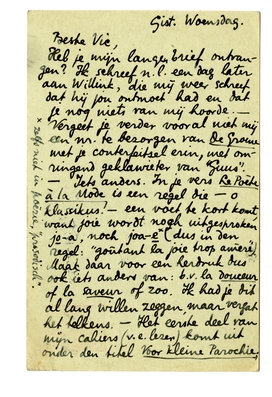 Gist. Woensdag.
Beste Vic,
Heb je mijn langen brief ontvan-
gen? Ik schreef n.l. een dag later
aan Willink, die mij weer schreef
dat hij jou ontmoet had en dat
je nog niets van mij hoorde. —
Vergeet je verder vooral niet mij
een nr. te bezorgen van De Groene
met je conterfeitsel erin, met om-
ringend geklavieter van "Guus".
Iets anders. In je vers Le Poète
à la Mode is een regel die — o
klassikus! — een voet te kort komt,
want joie wordt noch uitgesproken
jo-a, noch joa-e (dus in den
regel: "goûtant la joie trop amère).
Maak daar voor een herdruk dus
ook iets anders van: b.v. la douceur
of la saveur of zoo. Ik had je dit
al lang willen zeggen maar vergat
het telkens. — Het eerste deel van
mijn cahiers (v.e. lezer) komt uit
onder den titel Voor kleine Parochie,
x zelfs niet in poëzie, "prosodisch".